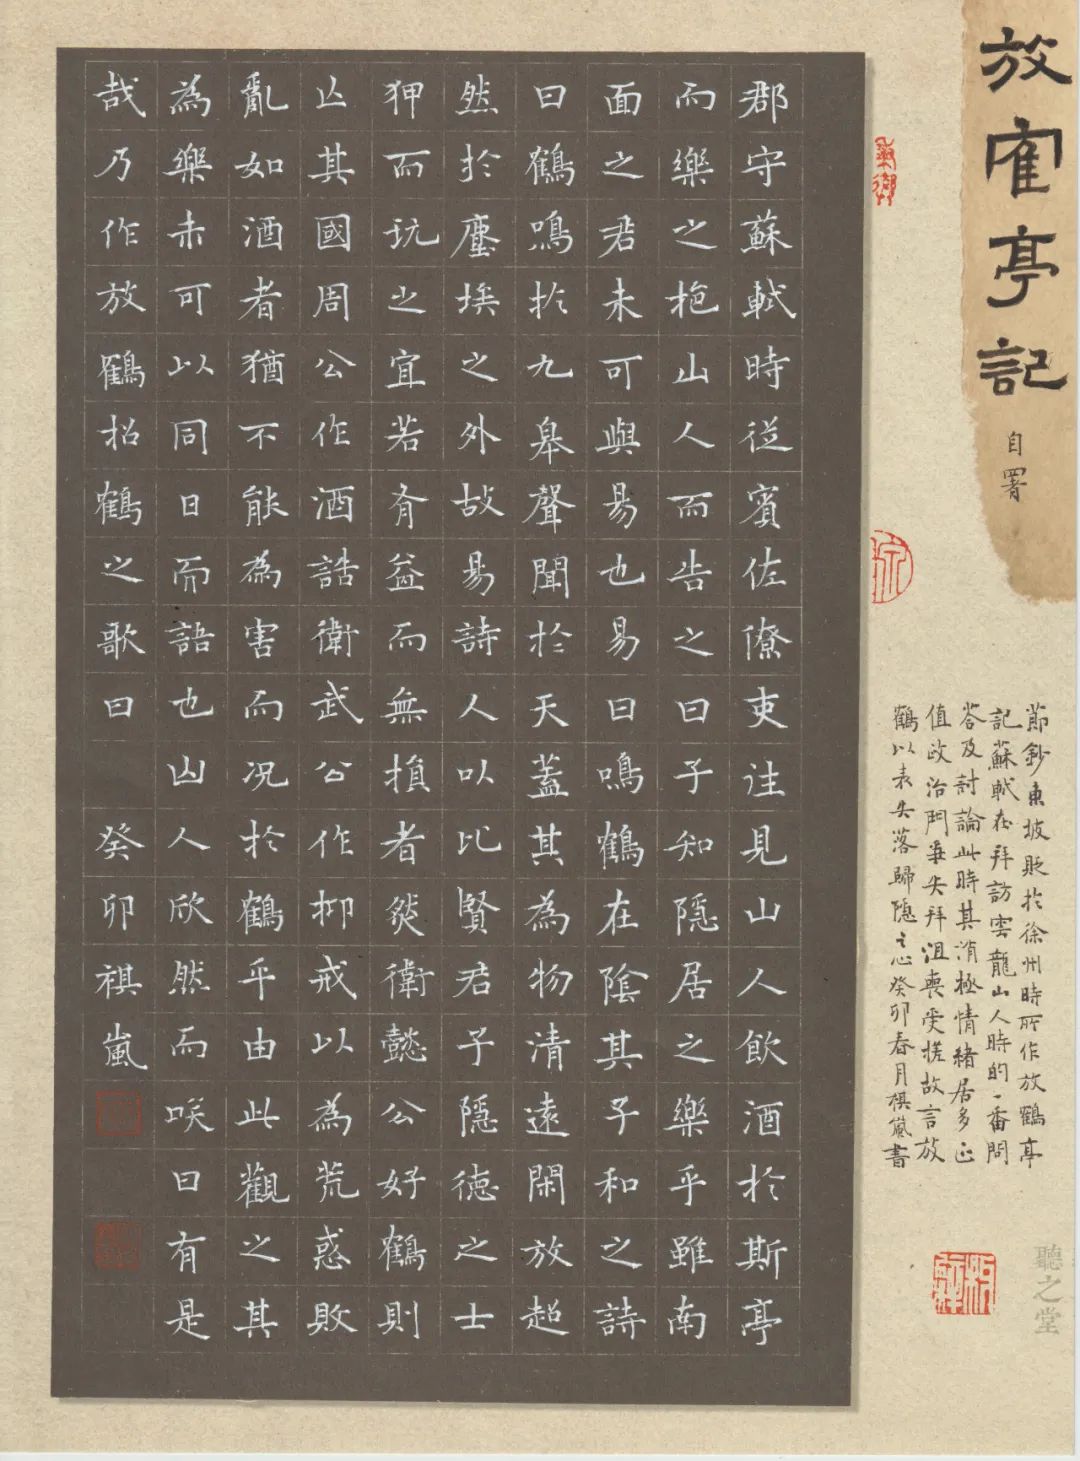 放寉亭記
自署
郡守蘇軾時從賓佐僚吏往見山人飲酒於斯亭
而樂之挹山人而告之曰子知隱居之樂乎雖南
面之君未可與易也易曰鳴鶴在陰其子和之詩
曰鶴鳴於九皋聲聞於天蓋其為物清遠閑放超
然於塵埃之外故易詩人以比賢君子隱德之士
狎而玩之宜若有益而無損者然衛懿公好鶴則
亡其國周公作酒誥衛武公作抑戒以為荒惑敗
亂如酒者猶不能為害而况於鶴乎由此觀之其
為樂未可以同日而語也山人欣然而咲曰有是
哉乃作放鶴招鶴之歌曰 癸卯祺嵐
節鈔東坡貶於徐州時所作放鶴亭
記蘇軾在拜訪雲龍山人時的一番問
答及討論此時其消極情緒居多正
值政治鬥爭失拜沮喪受挫故言放
鶴以表失落歸隱之心癸卯春月祺嵐書
聽之堂